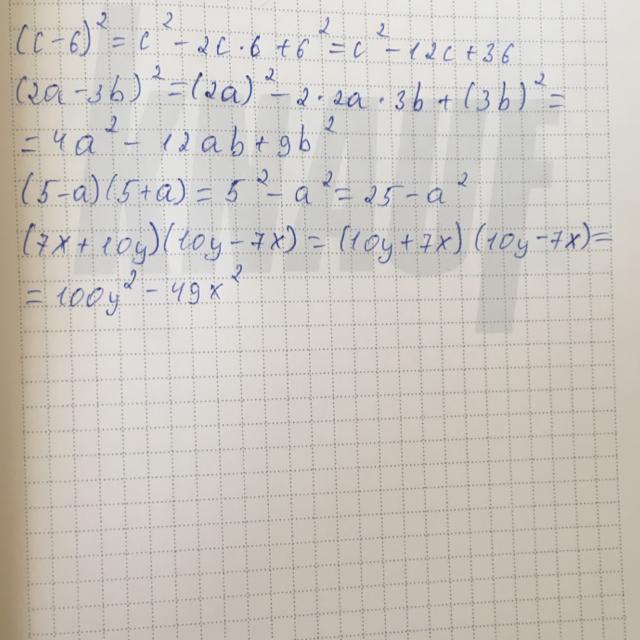 (c-6)² = c² - 2c·6 + 6² = c² - 12c + 36
(2a-3b)² = (2a)² - 2·2a·3b + (3b)² =
= 4a² - 12ab + 9b²
(5-a)(5+a) = 5² - a² = 25 - a²
(7x+10y)(10y-7x) = (10y+7x)(10y-7x) =
= 100y² - 49x²
KNAUF